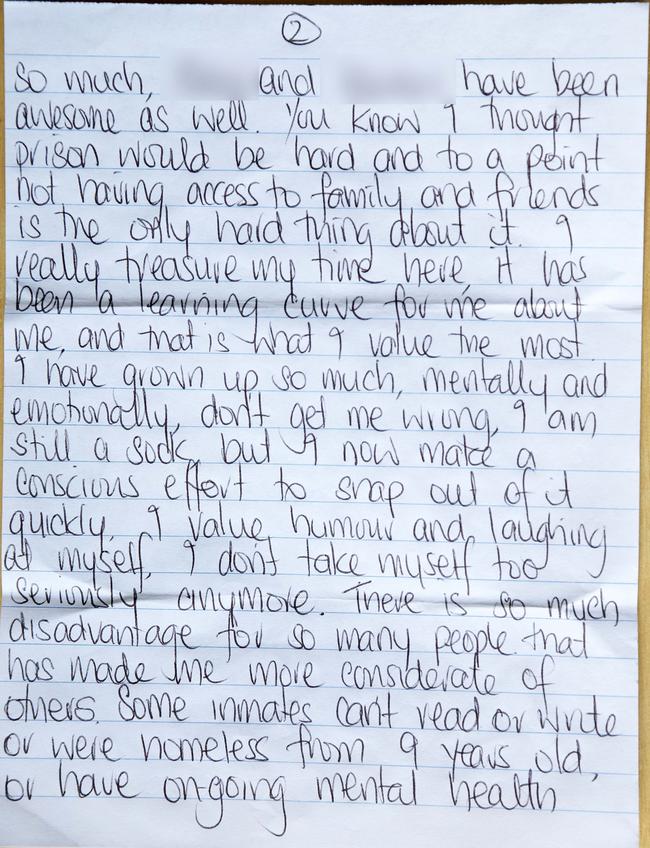 2
so much, and have been
awesome as well. You know I thought
prison would be hard and to a point
not having access to family and friends
is the only hard thing about it. I
really treasure my time here, it has
been a learning curve for me about
me, and that is what I value the most.
I have grown up so much, mentally and
emotionally, don't get me wrong, I am
still a sook, but I now make a
conscious effort to snap out of it
quickly. I value humour and laughing
at myself, I don't take myself too
seriously anymore. There is so much
disadvantage for so many people that
has made me more considerate of
others. Some inmates can't read or write
or were homeless from 9 years old,
or have on-going mental health